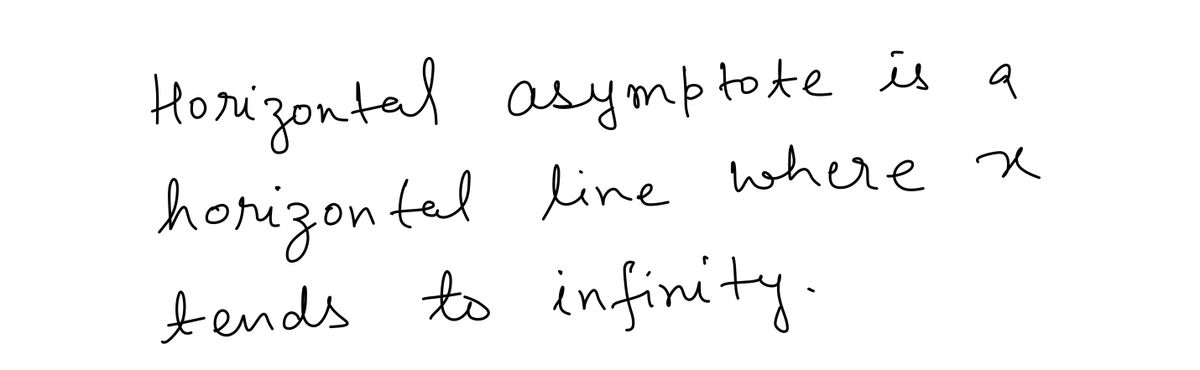 Horizontal asymptote is a
horizontal line where x
tends to infinity.